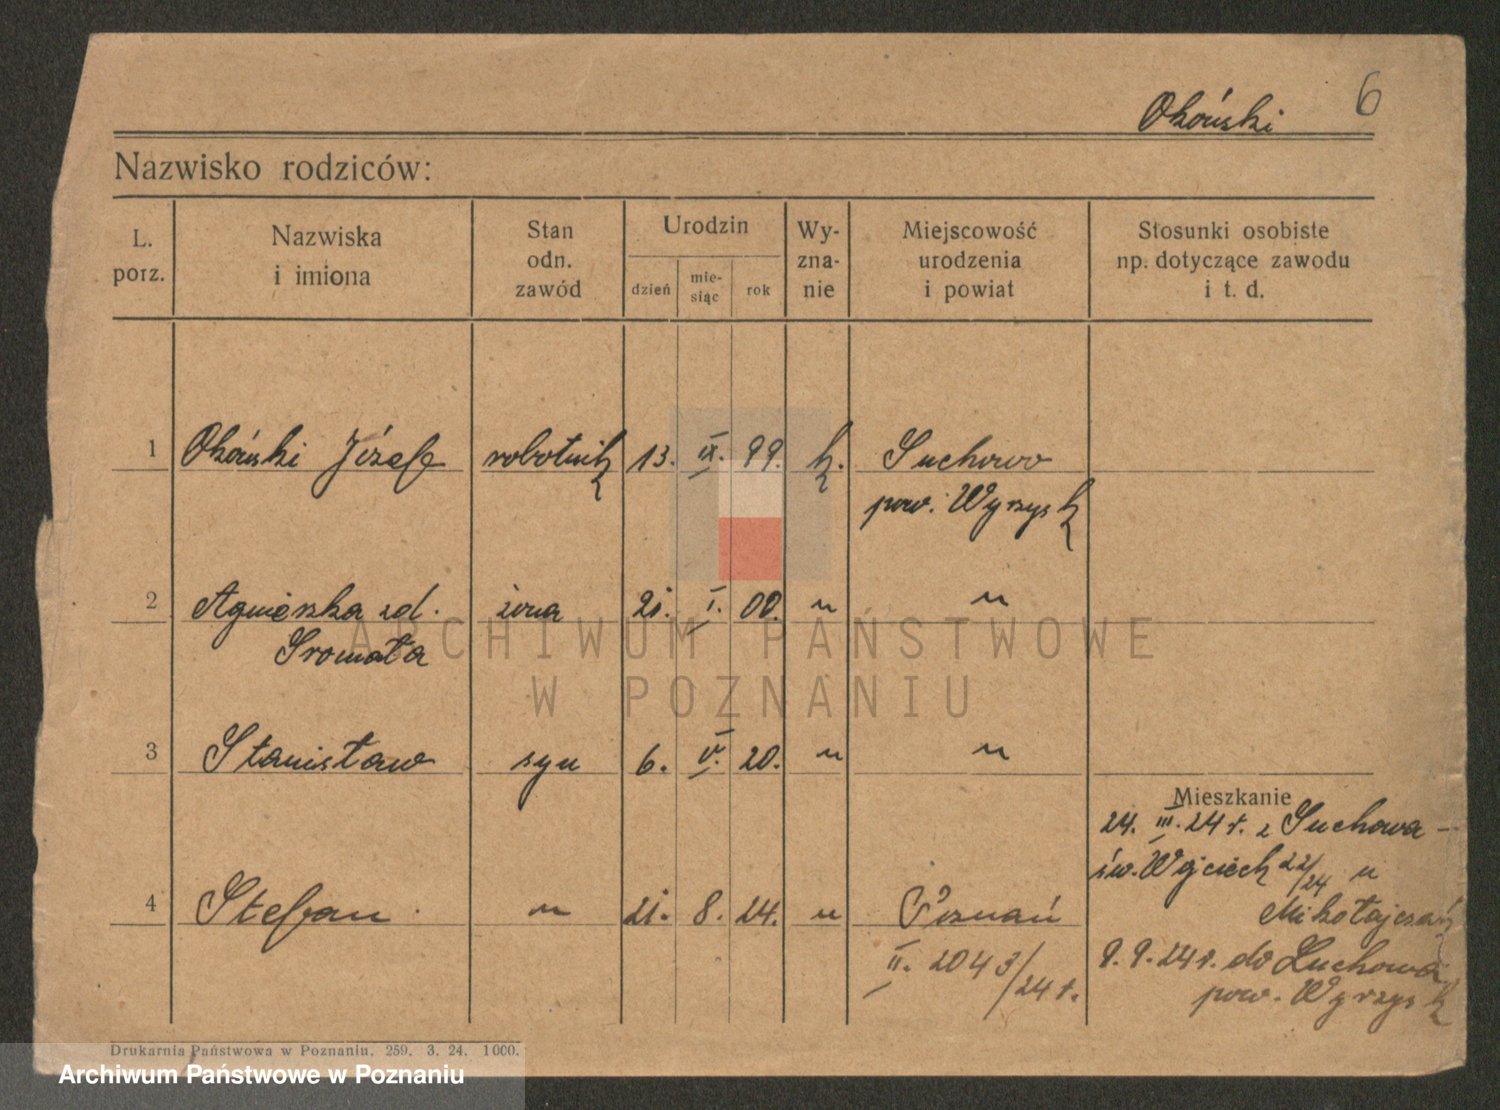 6
Okoński
Nazwisko rodziców:
L. porz.
Nazwiska i imiona
Stan odn. zawód
Urodzin
dzień
mie-siąc
rok
Wy-zna-nie
Miejscowość urodzenia i powiat
Stosunki osobiste np. dotyczące zawodu i t. d.
1 Okoński Józef robotnik 13. IX. 99. k. Suchowo
pow. Wyrzysk
2 Agnieszka zd. żona 21. I. 00. " "
Sromała
3 Stanisław syn 6. V. 20. " "
Mieszkanie
24. III. 24 r. z Suchowa -
św. Wojciech 22/24 u
4 Stefan " 21. 8. 24. " Poznań
Mikołajczak
II. 2043/24 r.
9. 9. 24 r. do Suchowa
pow. Wyrzysk
ARCHIWUM PAŃSTWOWE
W POZNANIU
Drukarnia Państwowa w Poznaniu. 259. 3. 24. 1000.
Archiwum Państwowe w Poznaniu